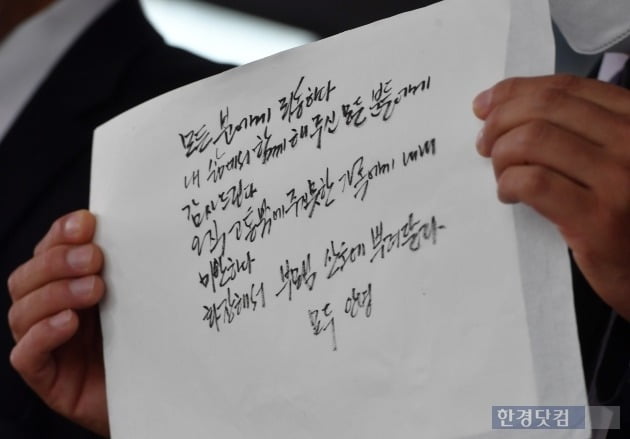 모든 분에게 죄송하다
내 삶에서 함께 해주신 모든 분들에게
감사드린다
오직 고통밖에 주지 못한 가족에게 내내
미안하다
화장해서 부모님 산소에 뿌려달라
모두 안녕
한경닷컴